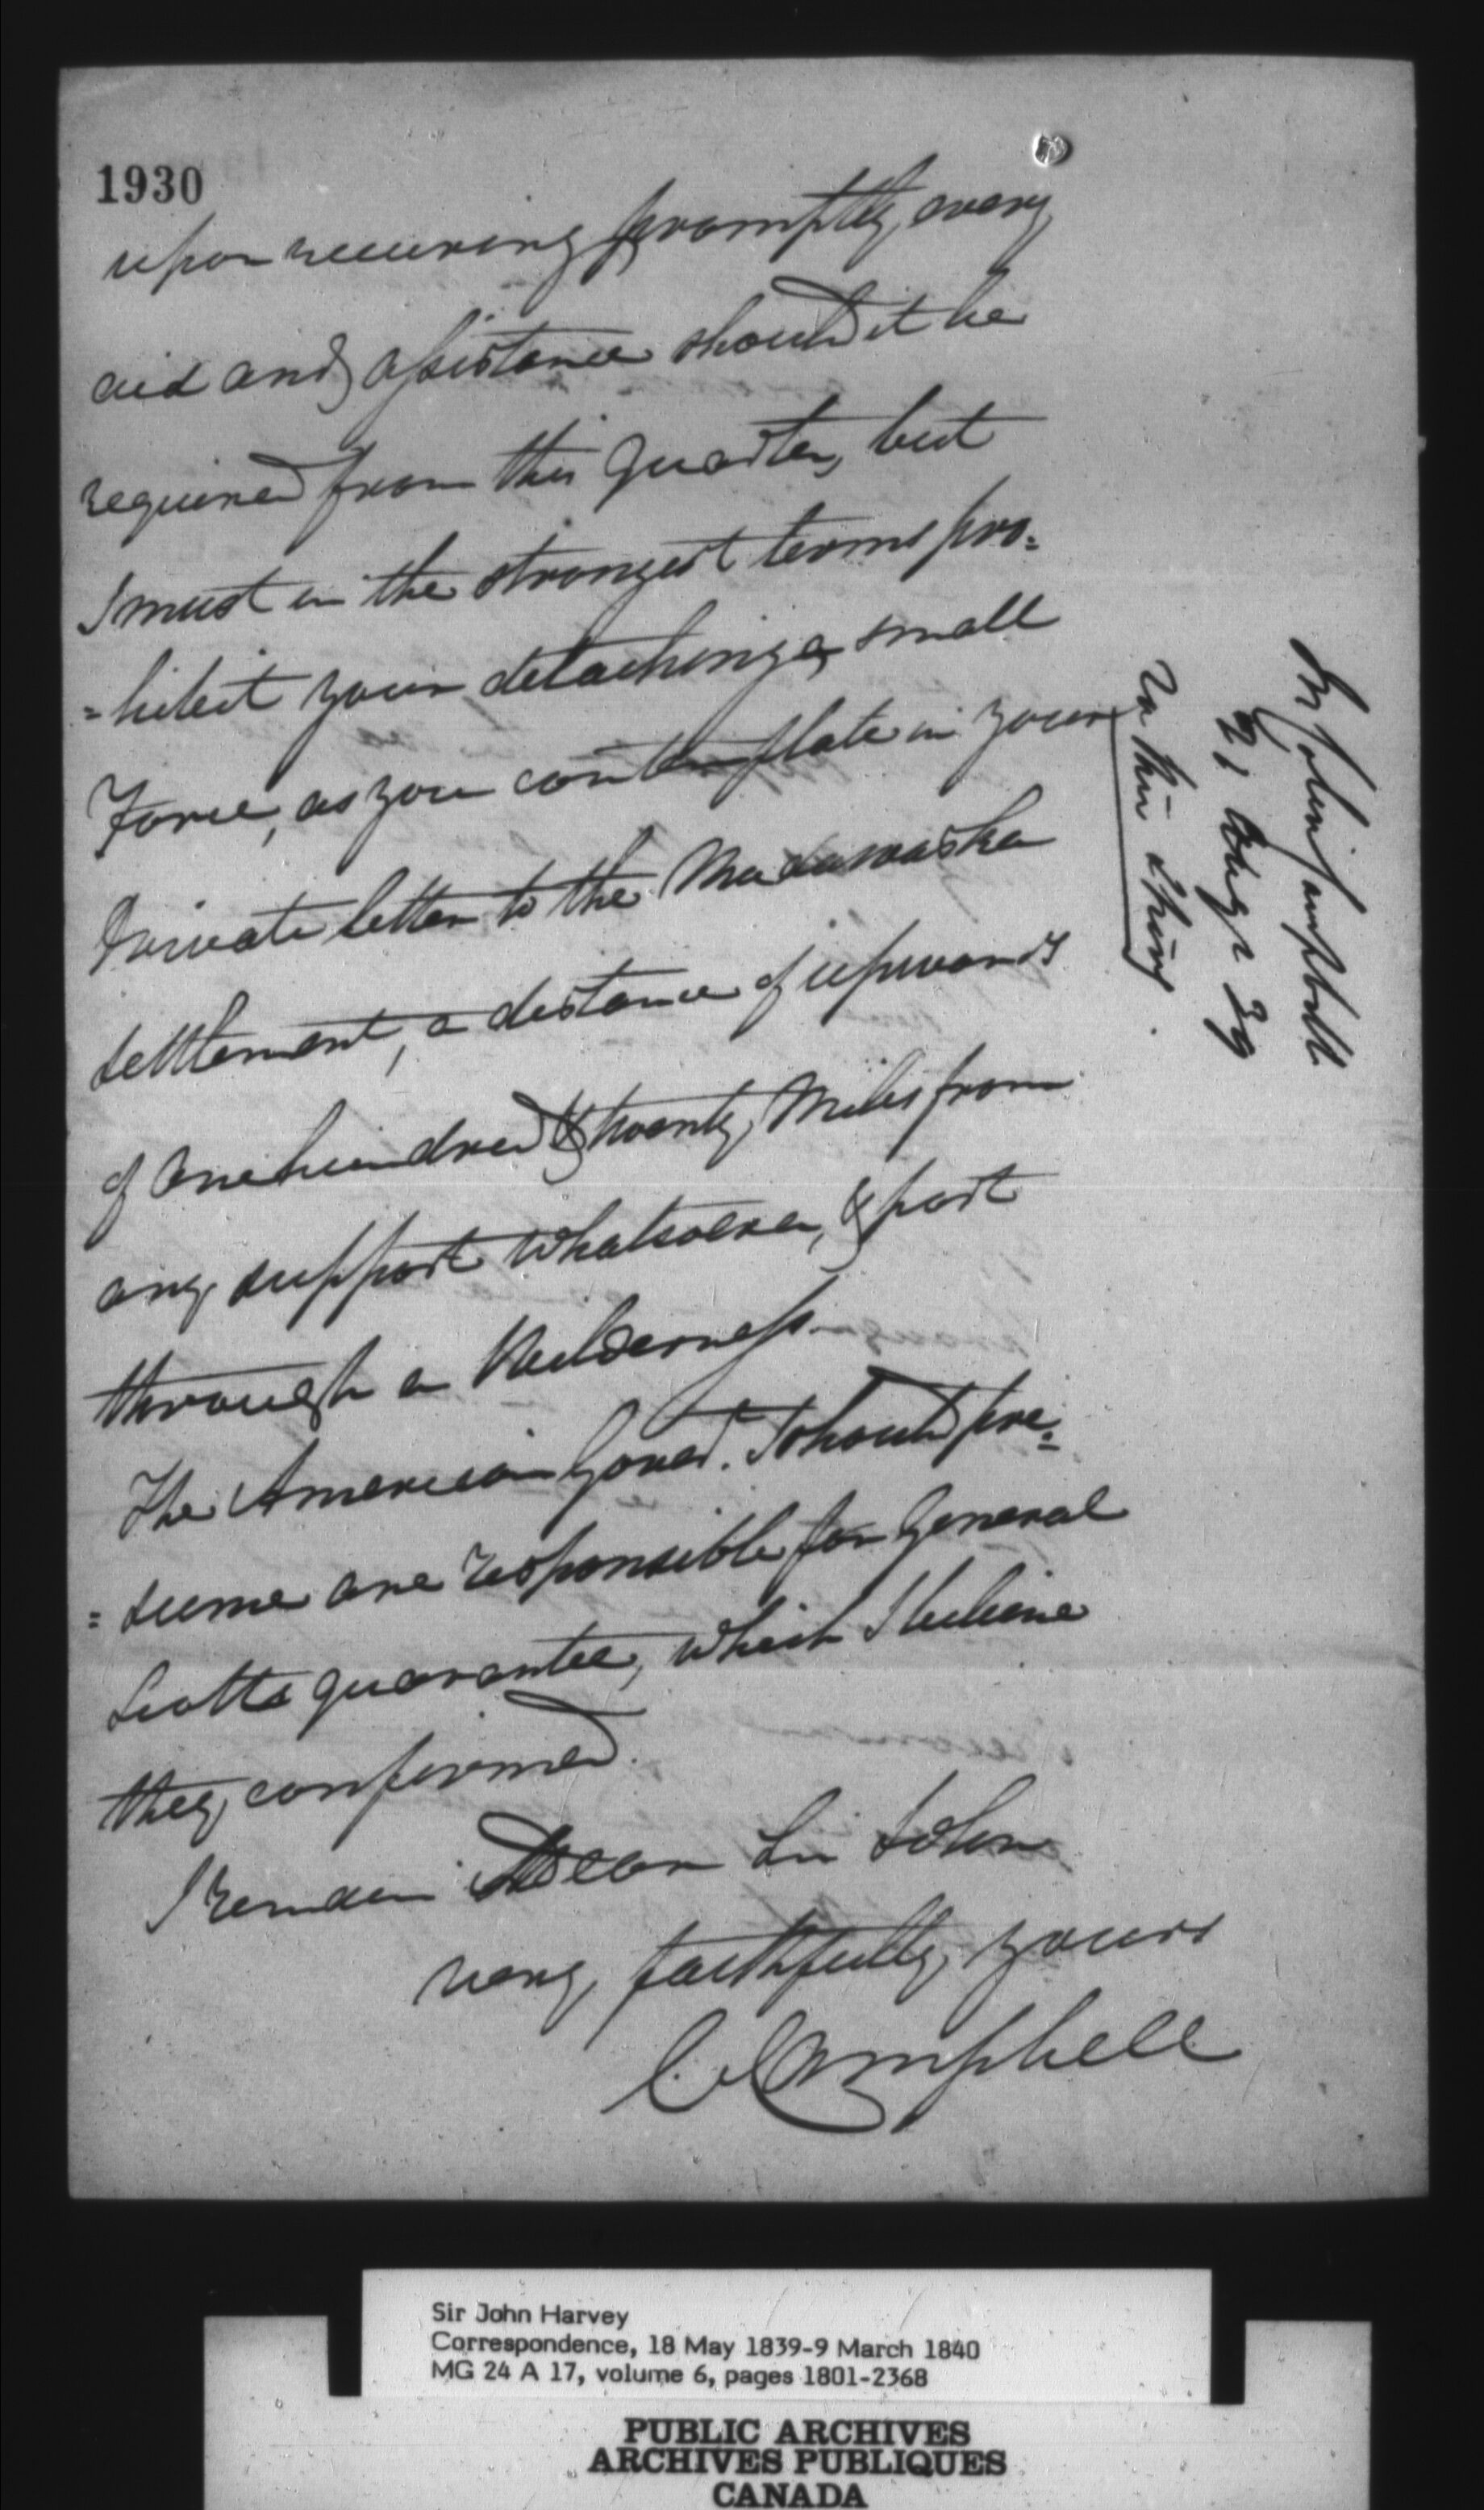 1930
upon receiving promptly every
aid and assistance should it be
required from this Quarter, but
I must in the strongest terms pro=
=hibit your detaching a small
Force, as you contemplate in your
Private letter to the Madawaska
Settlement, a distance of upwards
of One hundred & twenty Miles from
any support whatsoever, & part
through a Wilderness.
The American Govert. I should pre=
=sume are responsible for General
Scotts guarantee, which I believe
they confirmed.
I remain Dear Sir John
very faithfully yours
C Campbell
Sr Colin Campbell
21 Augt 39
Sir John Harvey
Correspondence, 18 May 1839-9 March 1840
MG 24 A 17, volume 6, pages 1801-2368
PUBLIC ARCHIVES
ARCHIVES PUBLIQUES
CANADA